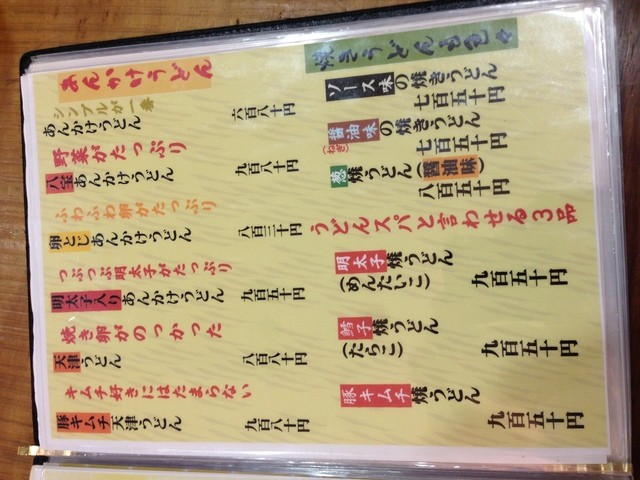 あんかけうどん
シンプルが一番
あんかけうどん 六百八十円
野菜がたっぷり
八宝あんかけうどん 九百八十円
ふわふわ卵がたっぷり
卵とじあんかけうどん 八百三十円
つぶつぶ明太子がたっぷり
明太子入りあんかけうどん 九百五十円
焼き卵がのっかった
天津うどん 八百八十円
キムチ好きにはたまらない
豚キムチ天津うどん 九百八十円
焼きうどん色々
ソース味の焼きうどん
七百五十円
醤油味の焼きうどん
七百五十円
(ねぎ)
葱焼うどん(醤油味)
八百五十円
うどんスパと言わせる3品
明太子焼うどん
(めんたいこ) 九百五十円
鱈子焼うどん
(たらこ) 九百五十円
豚キムチ焼うどん
九百五十円